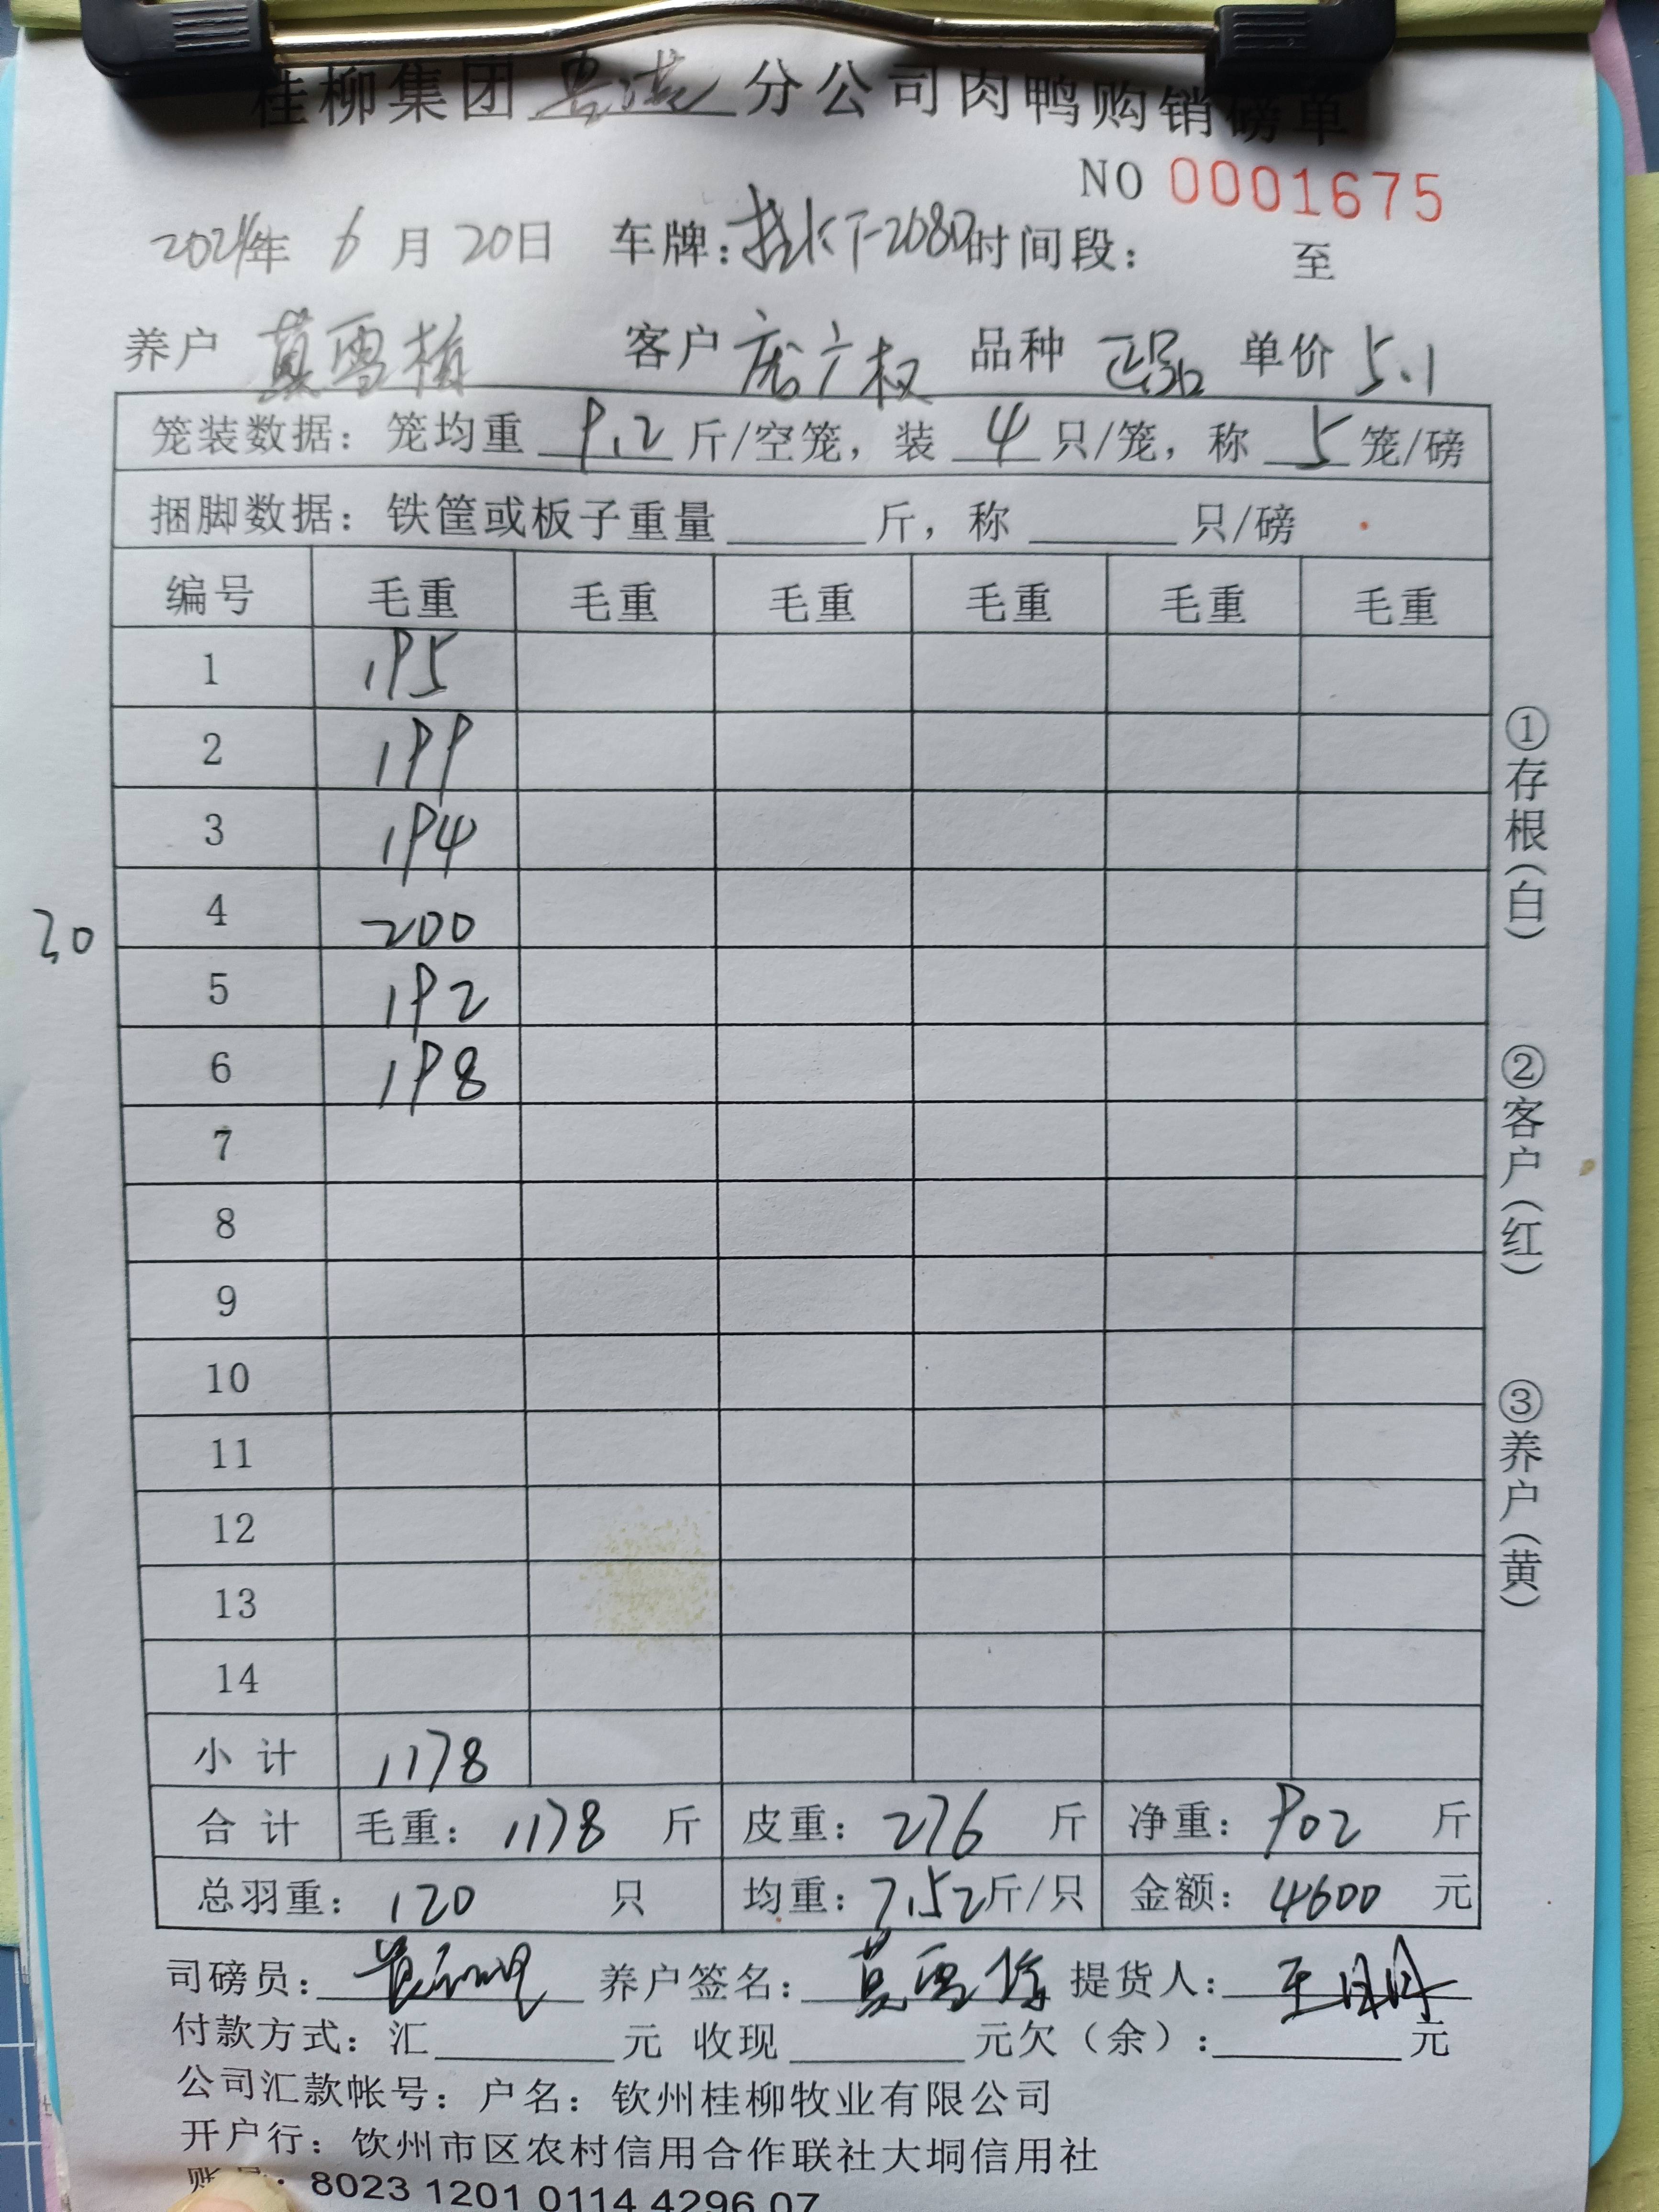 桂柳集团 分公司肉鸭购销磅单
NO 0001675
2024年 6 月 20日 车牌: 桂K T-2080 时间段: 至
养户 莫雪梅 客户 庞广权 品种 正品 单价 5.1
笼装数据: 笼均重 9.2 斤/空笼, 装 4 只/笼, 称 5 笼/磅
捆脚数据: 铁筐或板子重量 斤, 称 只/磅
编号 毛重 毛重 毛重 毛重 毛重 毛重
1 195
2 199
3 194
4 200
30
5 192
6 198
7
8
9
10
11
12
13
14
小计 1178
合计 毛重: 1178 斤 皮重: 276 斤 净重: 902 斤
总羽重: 120 只 均重: 7.52 斤/只 金额: 4600 元
司磅员: 养户签名: 莫雪梅 提货人:
付款方式: 汇 元 收现 元欠(余): 元
公司汇款帐号: 户名: 钦州桂柳牧业有限公司
开户行: 钦州市区农村信用合作联社大垌信用社
账号: 8023 1201 0114 4296 07
①存根(白)
②客户(红)
③养户(黄)